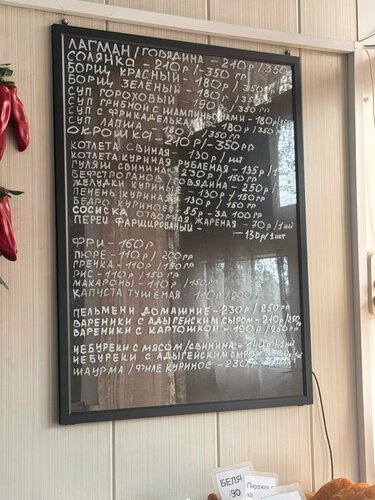 ЛАГМАН/ГОВЯДИНА-210р/350
СОЛЯНКА - 210р/350 гр
БОРЩ КРАСНЫЙ - 180р/350
БОРЩ ЗЕЛЁНЫЙ - 180р/350 гр
СУП ГОРОХОВЫЙ 190р/350 гр
СУП ГРИБНОЙ С ШАМПИНЬОНАМИ - 180р
СУП С ФРИКАДЕЛЬКАМИ - 180р/350
СУП ЛАПША - 180р/350 гр
ОКРОШКА - 210р/350гр
КОТЛЕТА СВИНАЯ - 130р/шт
КОТЛЕТА КУРИНАЯ РУБЛЕНАЯ - 135р/
ГУЛЯШ СВИНИНА 230р/150 гр
БЕФСТРОГАНОВ ГОВЯДИНА - 250р/150
ЖЕЛУДКИ КУРИНЫЕ 150 гр
ПЕЧЕНЬ КУРИНАЯ - 130р/150 гр
БЕДРО КУРИНОЕ 130р/
СОСИСКА 85р-ЗА 100 гр
ОТВАРНАЯ ЖАРЕНАЯ - 70р/1шт
ПЕРЕЦ ФАРШИРОВАНЫЙ -
- 130р/1шт
ФРИ-160р
ПЮРЕ - 110р/200гр
ГРЕЧКА - 110р/150гр
РИС - 110р/150 гр
МАКАРОНЫ - 110р/150гр
КАПУСТА ТУШЁНАЯ - 110р/200гр
ПЕЛЬМЕНИ ДОМАШНИЕ - 230р/250гр
ВАРЕНИКИ С АДЫГЕЙСКИМ СЫРОМ-210р/250
ВАРЕНИКИ С КАРТОШКОЙ - 190р/250гр
ЧЕБУРЕКИ С МЯСОМ/СВИНИНА - 140р/1шт
ЧЕБУРЕКИ С АДЫГЕЙСКИМ СЫРОМ
ШАУРМА/ФИЛЕ КУРИНОЕ - 230р
БЕЛЯ
90
Пирожок с
ка